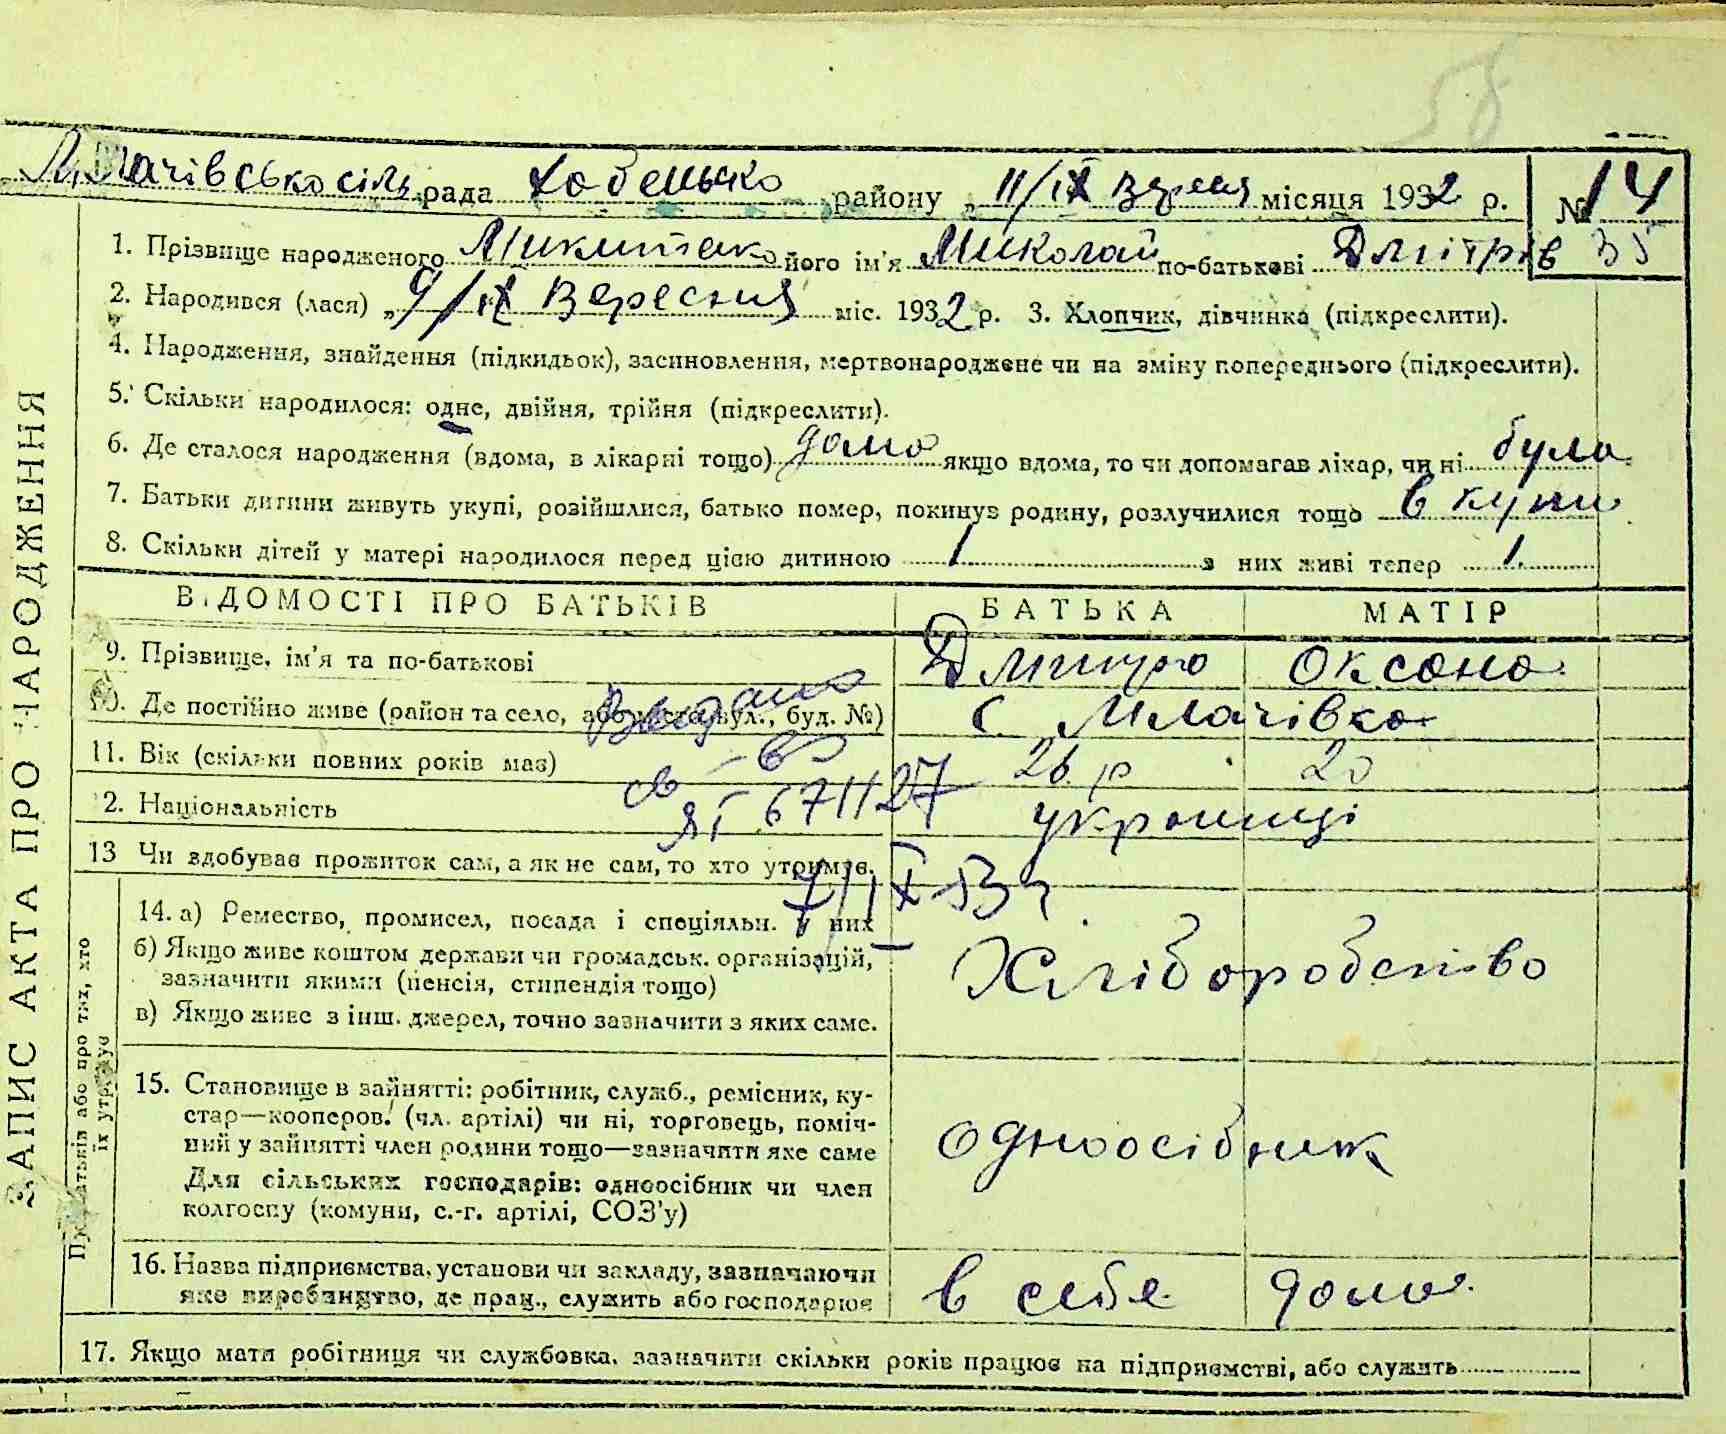 58
Млачівсько сіль. рада Хабенько району „ 11/IX Вересня місяця 1932 р. № 14
1. Прізвище народженого Микитенко його ім'я Миколай по-батькові Дмітрів 35
2. Народився (лася) „ 9/IX Вересня міс. 1932 р. 3. Хлопчик, дівчинка (підкреслити).
4. Народження, знайдення (підкидьок), засиновлення, мертвонароджене чи на зміну попереднього (підкреслити).
5. Скільки народилося: одне, двійня, трійня (підкреслити).
6. Де сталося народження (вдома, в лікарні тощо) дома якщо вдома, то чи допомагав лікар, чи ні була
7. Батьки дитини живуть укупі, розійшлися, батько помер, покинув родину, розлучилися тощо в купи
8. Скільки дітей у матері народилося перед цією дитиною 1 з них живі тепер 1.
ВІДОМОСТІ ПРО БАТЬКІВ БАТЬКА МАТІР
9. Прізвище, ім'я та по-батькові Дмитро Оксана
10. Де постійно живе (район та село, або місто, вул., буд. №) с. Млачівка
Выдано
11. Вік (скільки повних років має) 26 р 20
св-во
12. Національність українці
ЯГ 671127
13 Чи здобуває прожиток сам, а як не сам, то хто утримує.
7/IX-53 г
14. а) Ремество, промисел, посада і спеціяльн. у них
б) Якщо живе коштом держави чи громадськ. організацій,
зазначити якими (пенсія, стипендія тощо) Хліборобство
в) Якщо живе з інш. джерел, точно зазначити з яких саме.
15. Становище в зайнятті: робітник, служб., ремісник, ку-
стар—кооперов. (чл. артілі) чи ні, торговець, поміч-
ний у зайнятті член родини тощо—зазначити яке саме одноосібник
Для сільських господарів: одноосібник чи член
колгоспу (комуни, с.-г. артілі, СОЗ'у)
16. Назва підприємства, установи чи закладу, зазначаючи
яке виробництво, де прац., служить або господарює в себе дома.
17. Якщо мати робітниця чи службовка, зазначити скільки років працює на підприємстві, або служить
ЗАПИС АКТА ПРО НАРОДЖЕННЯ
Про батьків або про тих, хто
їх утримує